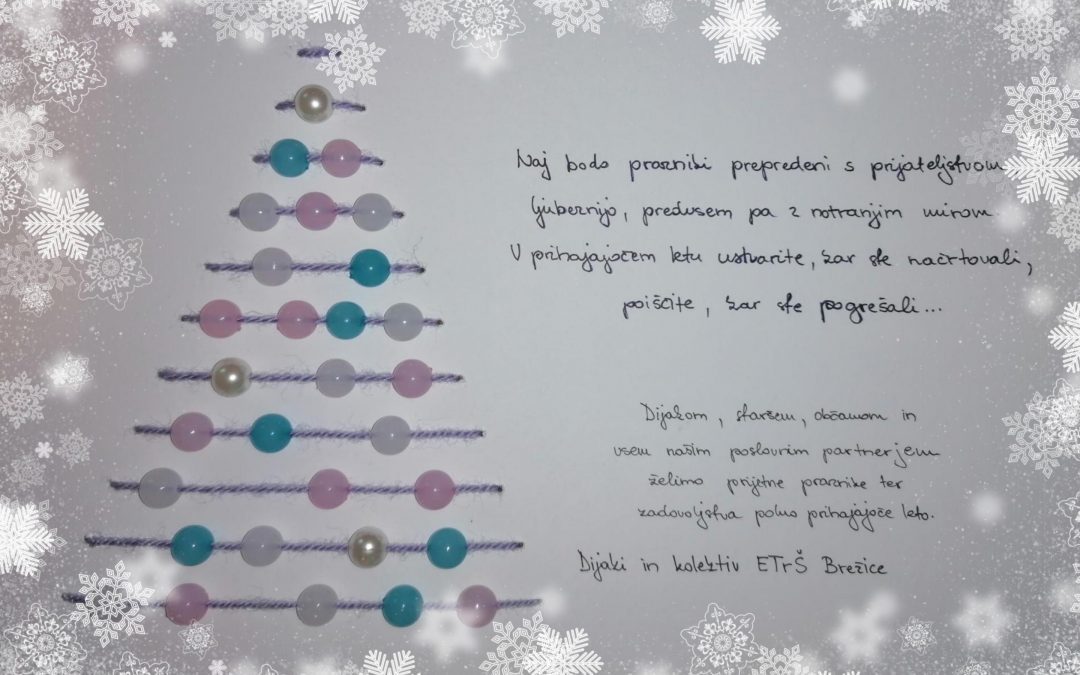 Naj bodo prazniki prepredeni s prijateljstvom
ljubeznijo, predvsem pa z notranjim mirom.
V prihajajočem letu ustvarite, kar ste načrtovali,
poiščite, kar ste pogrešali...
Dijakom, staršem, občanom in
vsem našim poslovnim partnerjem
želimo prijetne praznike ter
zadovoljstva polno prihajajoče leto.
Dijaki in kolektiv ETrŠ Brežice